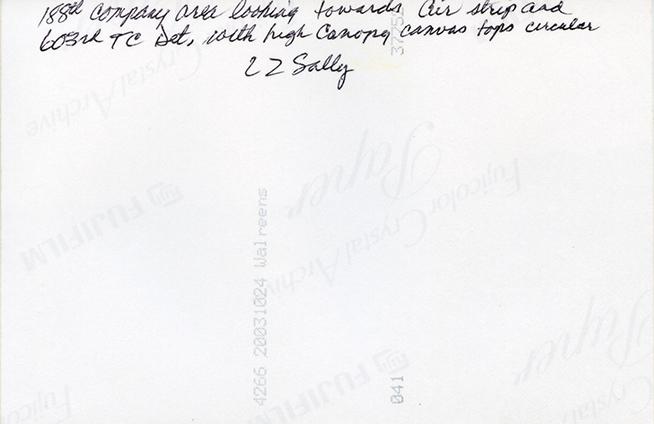 188th Company area looking towards Air strip and
603rd TC Det, with high canopy canvas tops circular
LZ Sally
Crystal Archive
Paper
Fujicolor Crystal Archive
FUJIFILM
4266 20031024 Walreens
041
FUJIFILM
Paper
Fujicolor